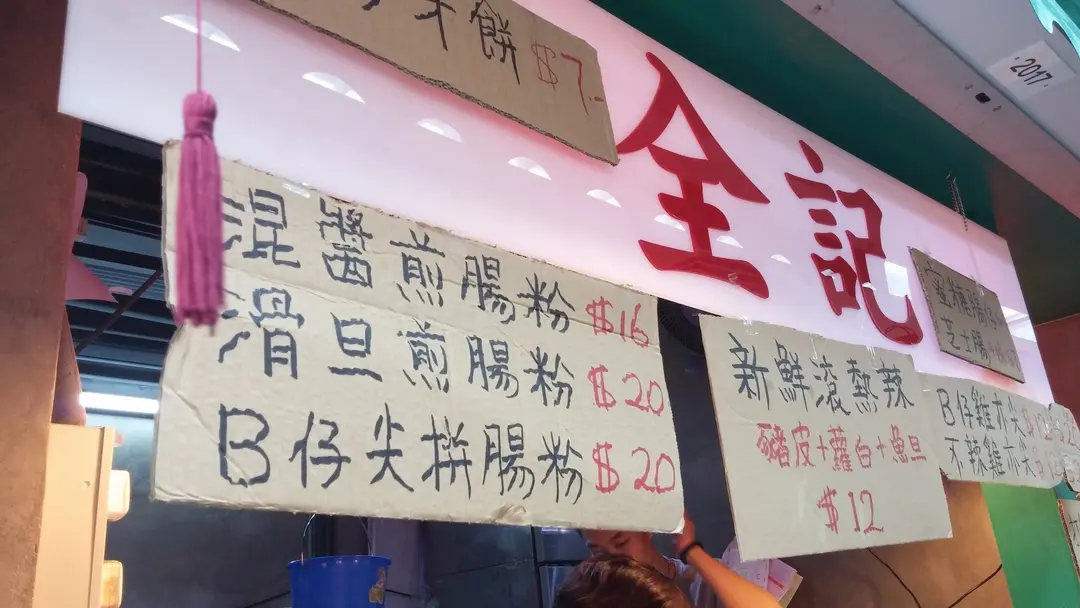 牙餅 $7.-
全記
混醬煎腸粉 $16
滑旦煎腸粉 $20
B仔尖拼腸粉 $20
新鮮滾熱辣
豬皮+蘿白+魚旦
$12
芝士腸
B仔雞亦尖 $12
不辣雞亦尖
2017